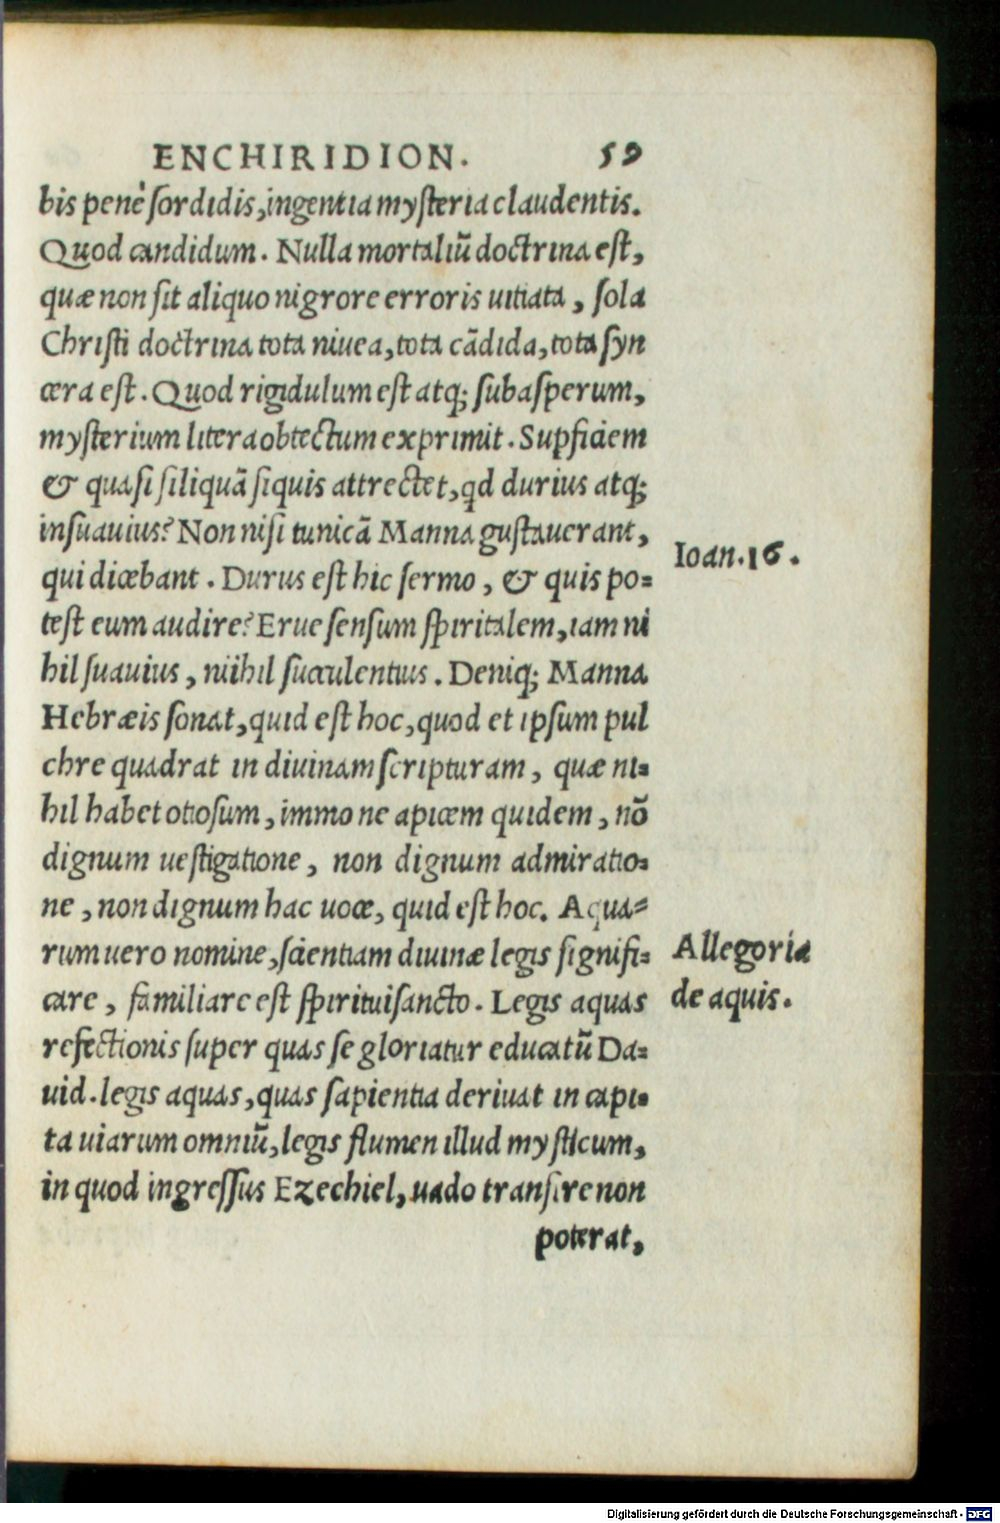 ENCHIRIDION. 59
bis penè ſordidis, ingentia myſteria claudentis.
Quod candidum. Nulla mortaliũ doctrina eſt,
quæ non ſit aliquo nigrore erroris uitiata, ſola
Chriſti doctrina tota niuea, tota cãdida, tota ſyn
cera eſt. Quod rigidulum eſt atq; ſubaſperum,
myſterium litera obtectum exprimit. Supficiem
& quaſi ſiliquã ſiquis attrectet, qd durius atq;
inſuauius? Non niſi tunicã Manna guſtauerant,
qui dicebant. Durus eſt hic ſermo, & quis po=
Ioan. 16.
teſt eum audire? Erue ſenſum ſpiritalem, iam ni
hil ſuauius, niihil ſucculentius. Deniq; Manna
Hebræis ſonat, quid eſt hoc, quod et ipſum pul
chre quadrat in diuinam ſcripturam, quæ ni=
hil habet otioſum, immo ne apicem quidem, nõ
dignum ueſtigatione, non dignum admiratio=
ne, non dignum hac uoce, quid eſt hoc. Aqua=
rum uero nomine, ſcientiam diuinæ legis ſignifi=
Allegoria
care, familiare eſt ſpirituiſancto. Legis aquas
de aquis.
refectionis ſuper quas ſe gloriatur educatũ Da=
uid. legis aquas, quas ſapientia deriuat in capi=
ta uiarum omniũ, legis flumen illud myſticum,
in quod ingreſſus Ezechiel, uado tranſire non
poterat,
Digitalisierung gefördert durch die Deutsche Forschungsgemeinschaft - DFG